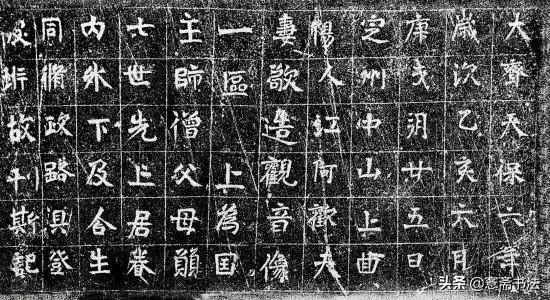 大齊天保六年
歲次乙亥六月
庚戌朔廿五日
定州中山上曲
陽人江阿歡夫
妻敬造觀音像
一區 上為国
主師僧父母願
七世先亡居眷
內外下及合生
同脩政路俱登
彼岸故刊斯記
头条